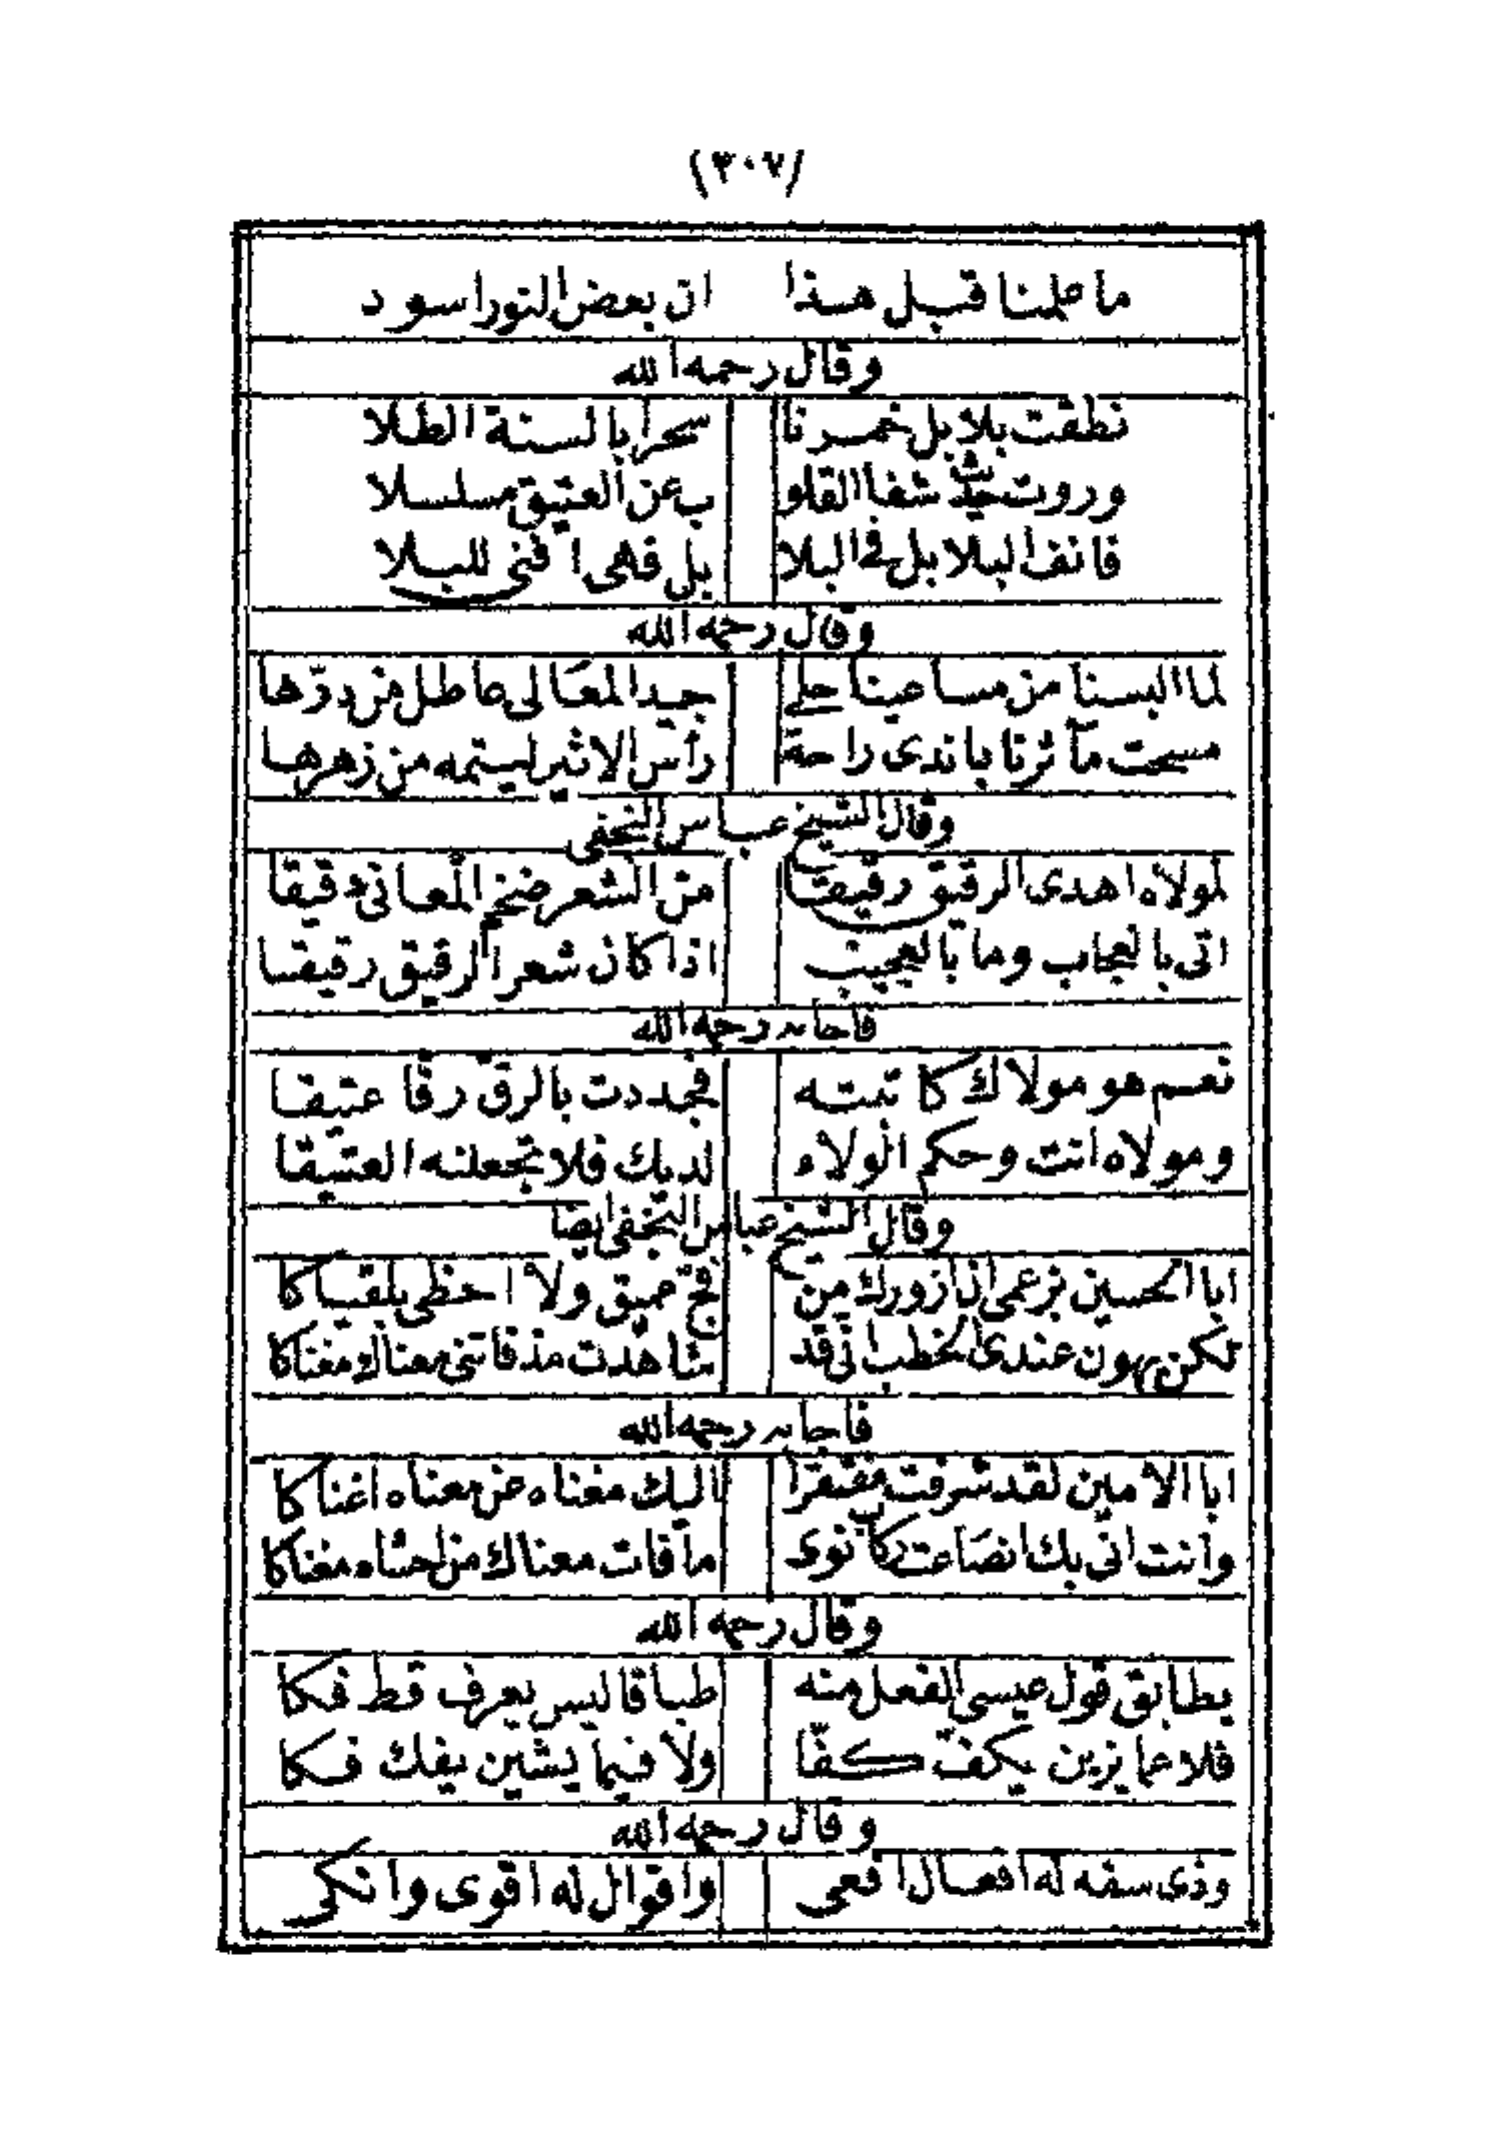 (٣٠٧)
ما علمنا قبل هذا ان بعض النور اسود
وقال رحمه الله
نطقت بلابل خمرنا سحرا بالسنة الطلا
وروت حديث شفا القلو ب عن العتيق مسلسلا
فانف البلابل في البلا بل فهي افنى للبلا
وقال رحمه الله
لما البسنا من مساعينا حلي جيد المعالى عاطل من درّها
مسحت مآثرنا باندى راحة رأس الاثير ليستمه من زهرها
وقال الشيخ عباس النجفي
لمولاه اهدى الرقيق رقيقا من الشعر ضخم المعانى دقيقا
اتى بالعجاب وما بالعجيب اذا كان شعر الرقيق رقيقا
فاجابه رحمه الله
نعم هو مولاك كاتبته فجددت بالرق رقّا عتيقا
ومولاه انت وحكم الولاء لديك فلا تجعلنه العتيقا
وقال الشيخ عباس النجفي ايضا
ابا الحسين بزعمى ان ازورك من فجّ عميق ولا احظى بلقياكا
لكن يهون عندى الخطب انى قد شاهدت مذ فاتنى معناك مغناكا
فاجابه رحمه الله
ابا الامين لقد شرفت مفتقرا اليك مغناه عن معناه اغناكا
وانت انّى بك انصاعت ركاب نوى ما فات معناك من احشاه مغناكا
وقال رحمه الله
يطابق قول عيسى الفعل منه طباقا ليس يعرف قط فكا
فلا عما يزين يكفّ كفّا ولا فيما يشين يفك فكا
وقال رحمه الله
وذى سفه له افعال افعى واقوال له اقوى وانكى